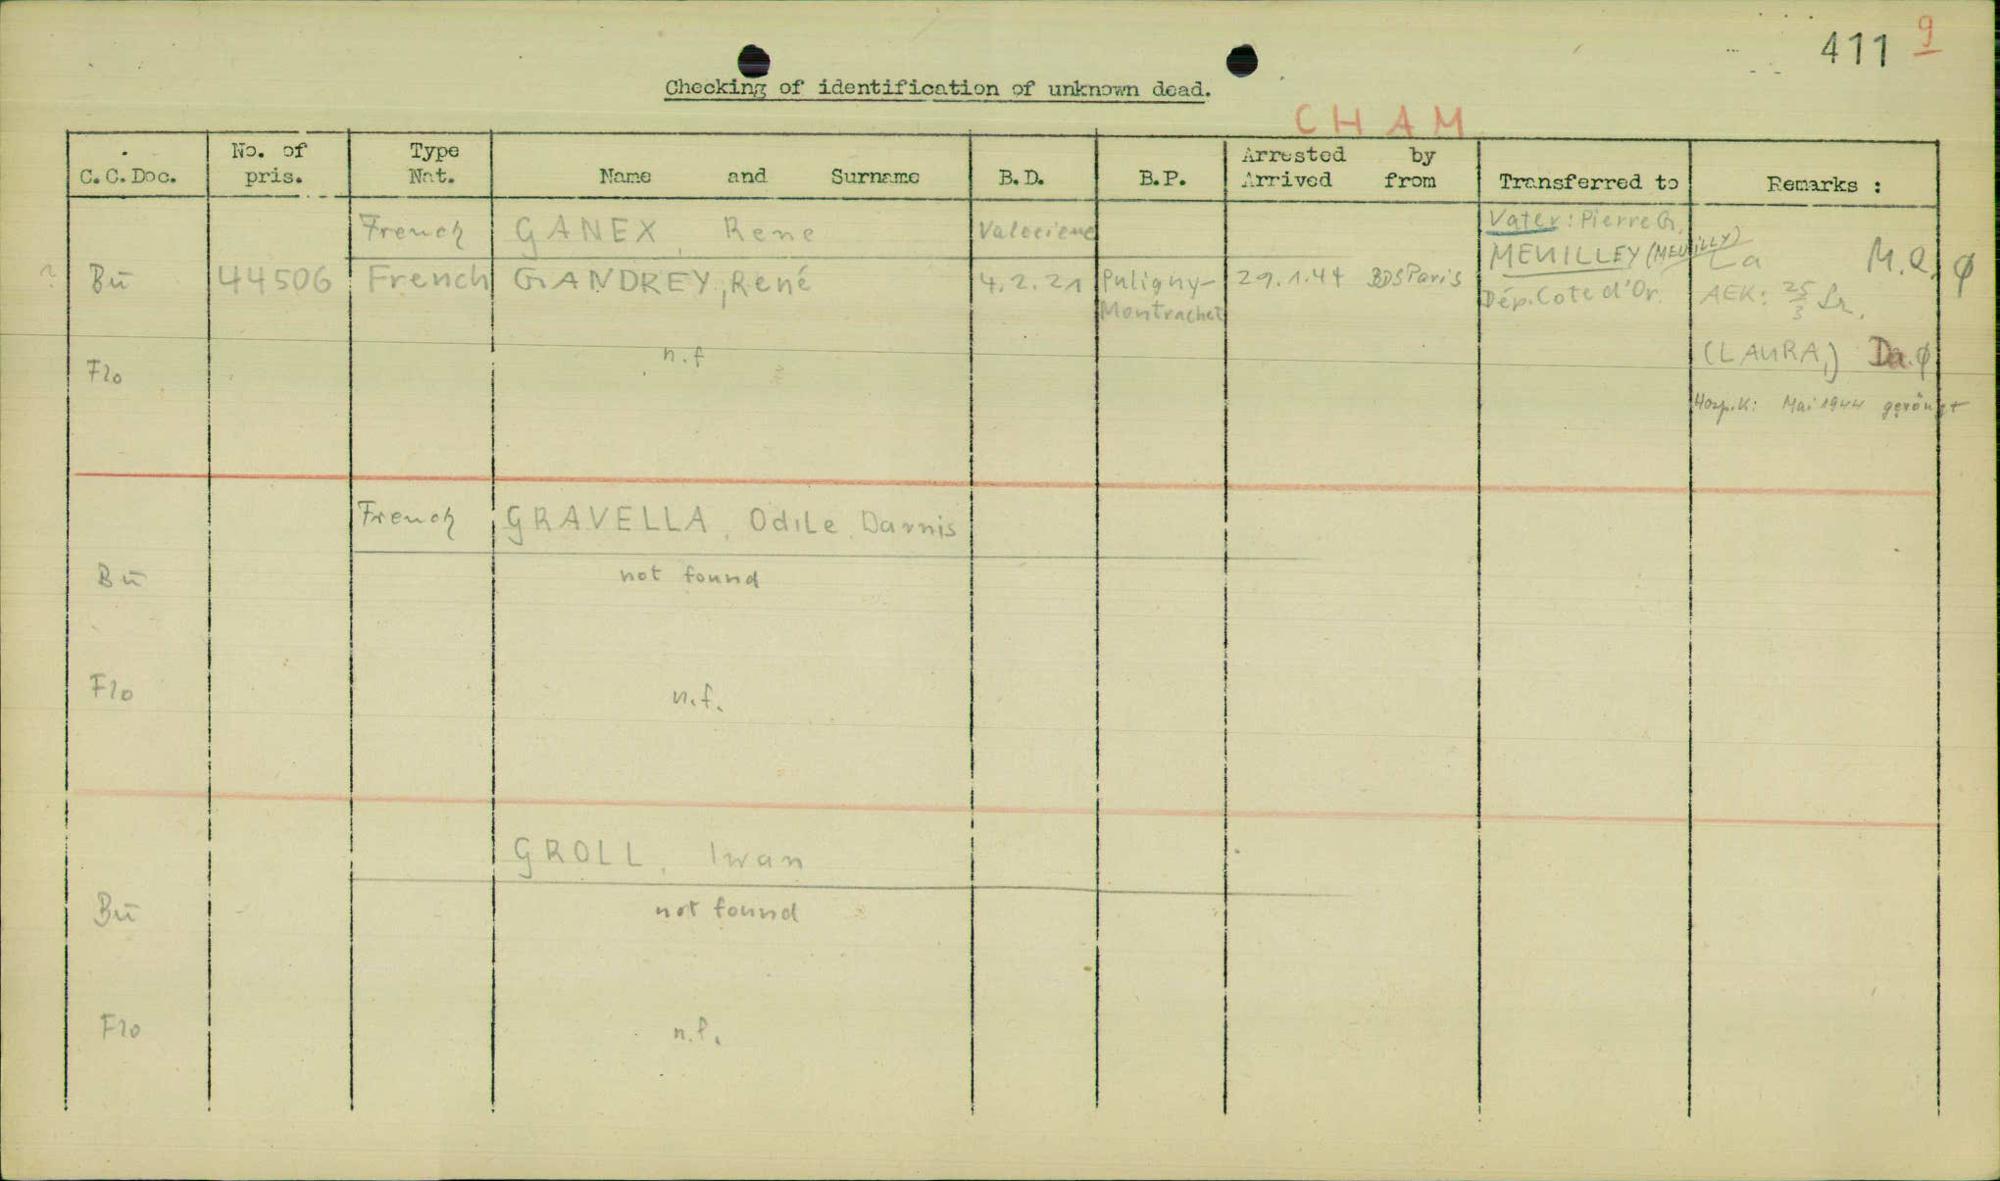 411 9
Checking of identification of unknown dead.
CHAM
C.C.Doc. No. of pris. Type Nat. Name and Surname B.D. B.P. Arrested by Arrived from Transferred to Remarks :
French GANEX, Rene Valeciene Vater: Pierre G.
MEUILLEY (MEUILLY)
? Bu 44506 French GANDREY, René 4.2.21 Puligny- 29.1.44 BDS Paris La M.Q. φ
Montrachet Dép. Cote d'Or. AEK: 25/3 Lr.
Flo n.f (LAURA,) Da. φ
Hosp.K: Mai 1944 geröngt
French GRAVELLA, Odile Darnis
Bu not found
Flo n.f.
GROLL, Iwan
Bu not found
Flo n.f.